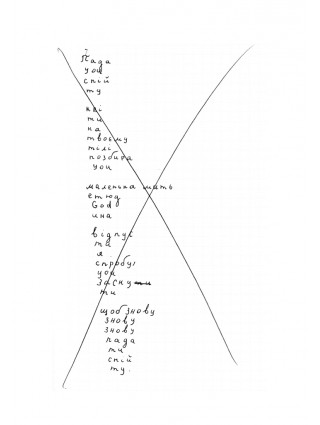 Пада
уои
спій
ту
кві
ти
на
твоєму
тілі
позбида
уои
маленька мать
етюд
God
ина
відпус
ти
я
спробує
уои
засну
ти
щоб знову
знову
знову
пада
ти
спій
ту.